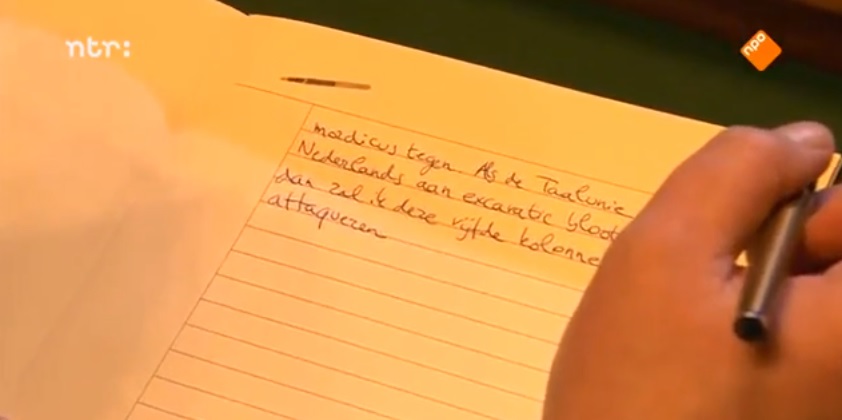 ntr:
npo
moedicus tegen. Als de Taalunie
Nederlands aan excavatie bloot
dan zal ik deze vijfde kolonne
attaqueren